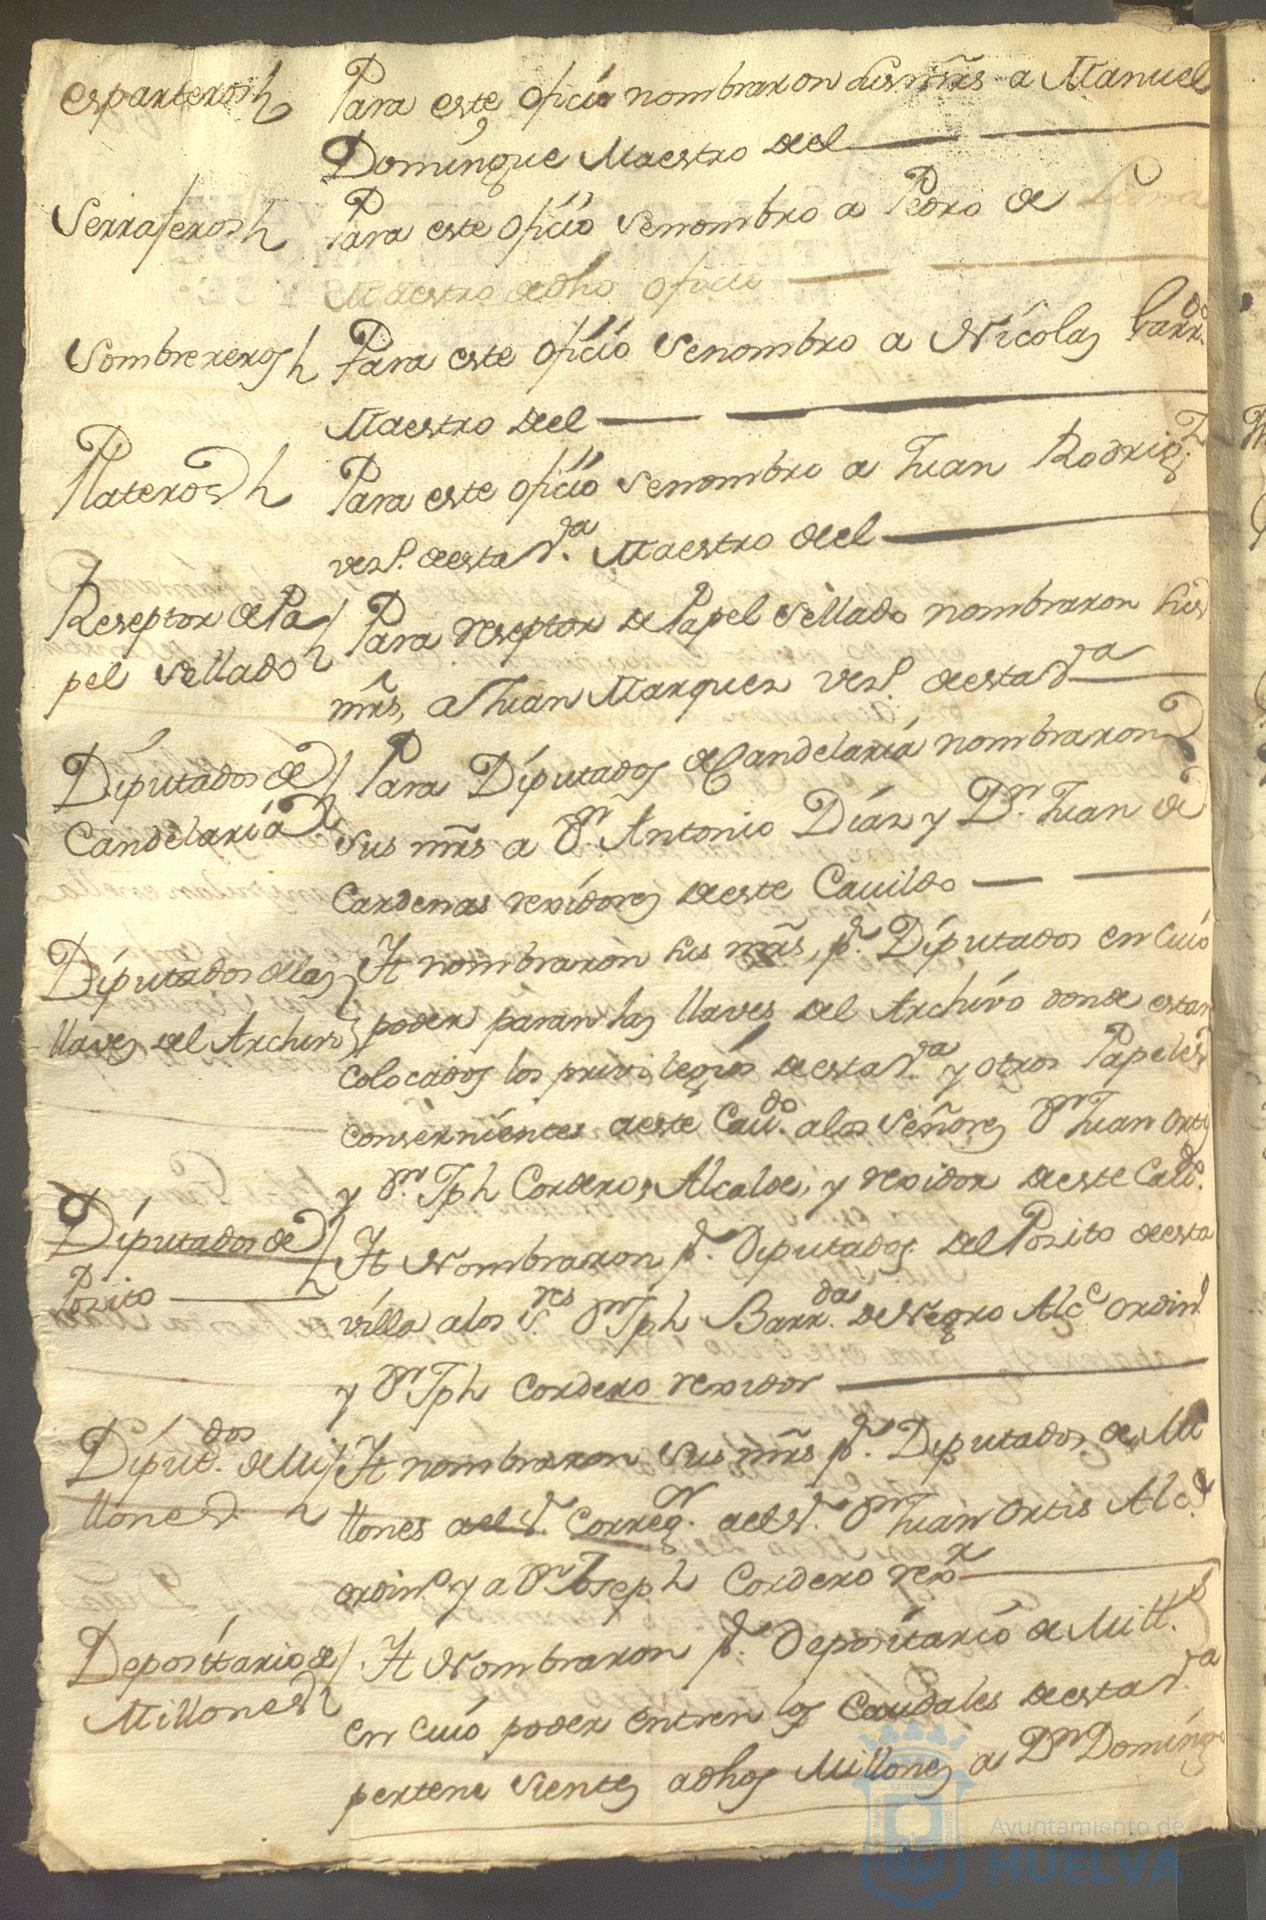 esparteros
Para este oficio nombraron sus mrs a Manuel
Domingue Maestro del
Serrajeros
Para este oficio senombro a Pedro de
Maestro de dho oficio
Sombrereros
Para este oficio senombro a Nicolas Barr.do
Maestro del
Plateros
Para este oficio senombro a Juan Rodrig.z
vez.º desta V.a Maestro del
Reseptor de Pa
pel Sellado
Para reseptor de Papel Sellado nombraron sus
mrs, a Juan Marquez vez.º desta V.a
Diputados de
Candelaria
Para Diputados de Candelaria nombraron
sus mrs a D.n Antonio Diaz y D.n Juan de
Cardenas rexidores deste Cavildo
Diputados de las
llaves del Archivo
It nombraron sus mrs, p.r Diputados en cuio
poder paran las llaves del Archivo donde estan
colocados los privilegios desta V.a y otros Papeles
consernientes a este Cav.do a los Señores D.n Juan Ortis
y D.n Jph Cordero, Alcalde, y rexidor deste Cab.do
Diputados de
Posito
It Nombraron p.r Diputados del Posito desta
villa a los S.res D.n Jph Barr.das de Negro Alc.e ordin.º
y D.n Jph Cordero rexidor
Diput.dos de Mi
llones
It nombraron sus mrs p.r Diputados de Mi
llones al S.r Correg.or al S.r D.n Juan Ortis Alc.e
ordin.º y a D.n Joseph Cordero rex.r
Depositario de
Millones
It Nombraron p.r Depositario de Mill.s
en cuio poder entren los Caudales desta V.a
perteneSientes a dhos Millones a D.n Doming
Ayuntamiento de
HUELVA